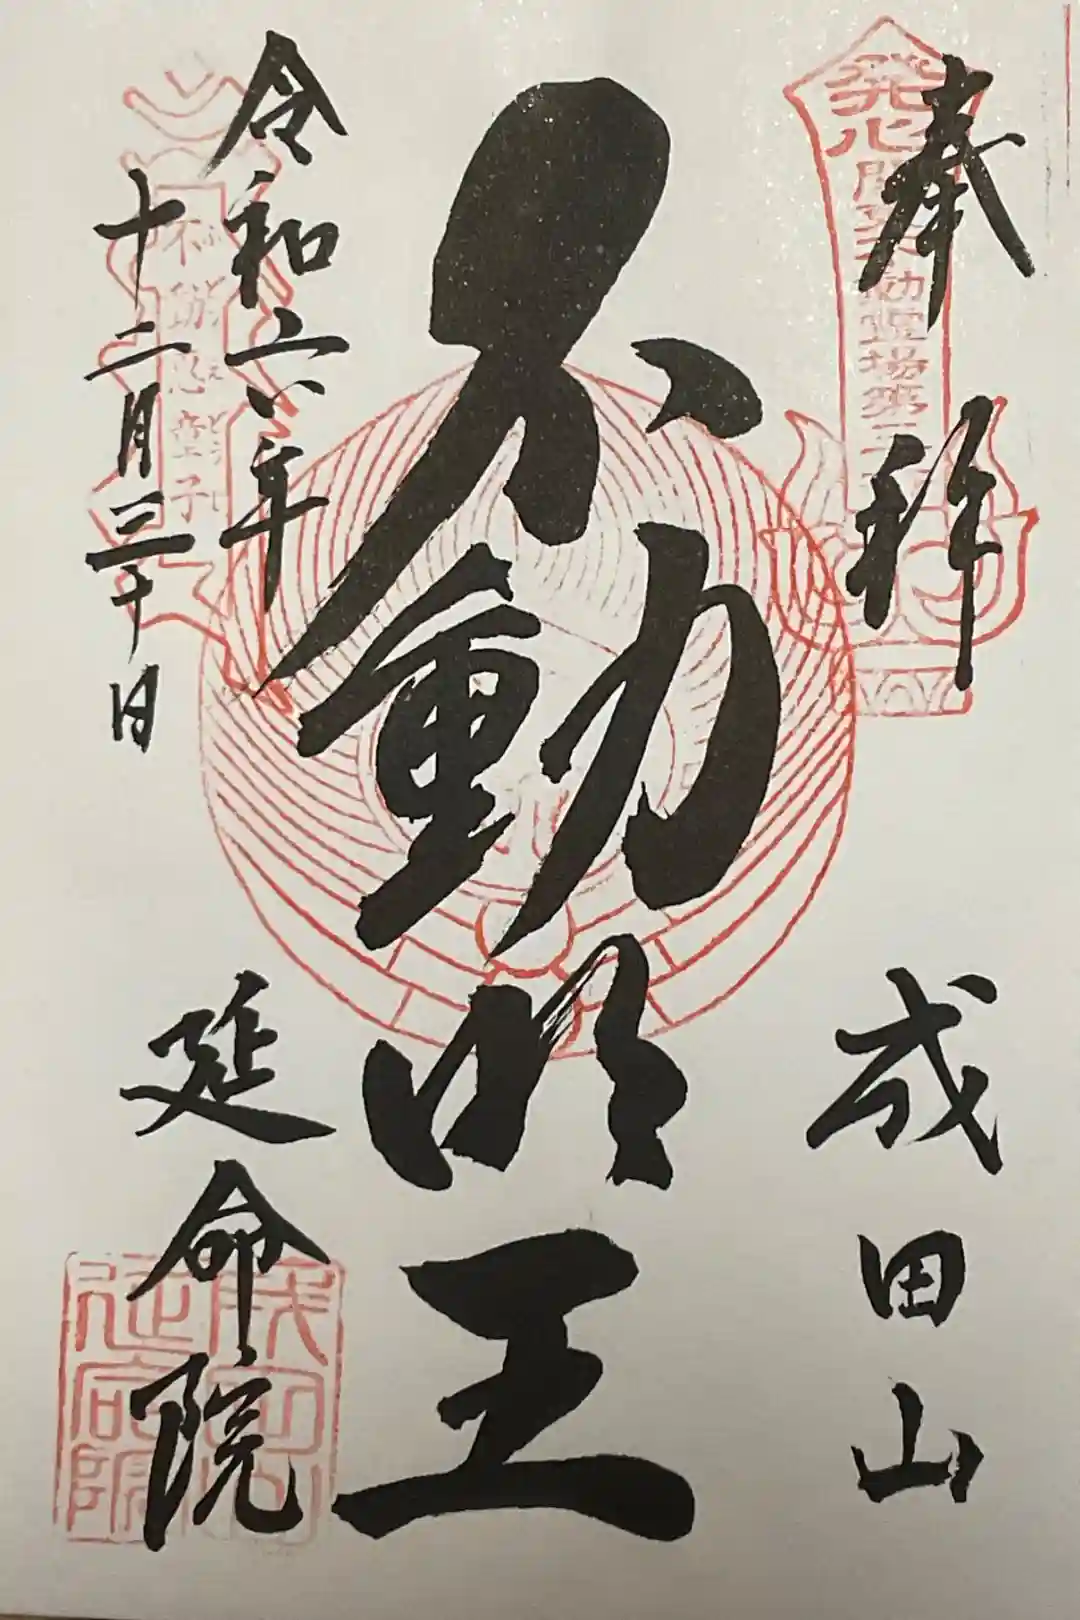 奉拝
発心
関東不動霊場第三
成田山
不動明王
令和六年
十二月三十日
不動恵童子
延命院
成田山
延命院